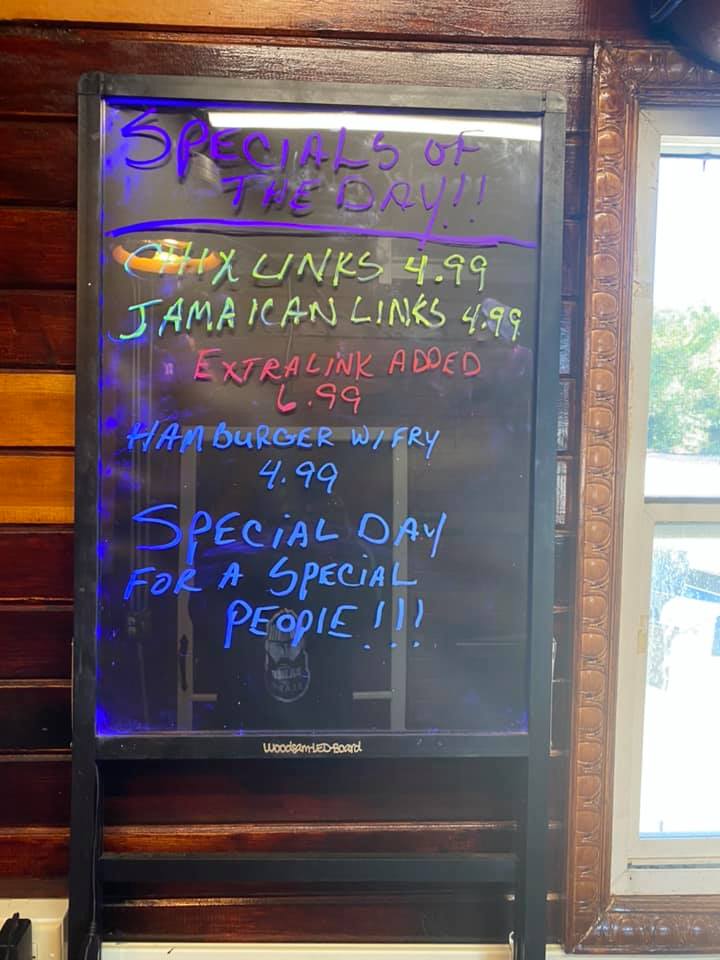 SPECIALS OF
THE DAY!!
CHIX LINKS 4.99
JAMAICAN LINKS 4.99
EXTRA LINK ADDED
6.99
HAMBURGER W/FRY
4.99
SPECIAL DAY
FOR A SPECIAL
PEOPlE!!!
Woodsam LED Board